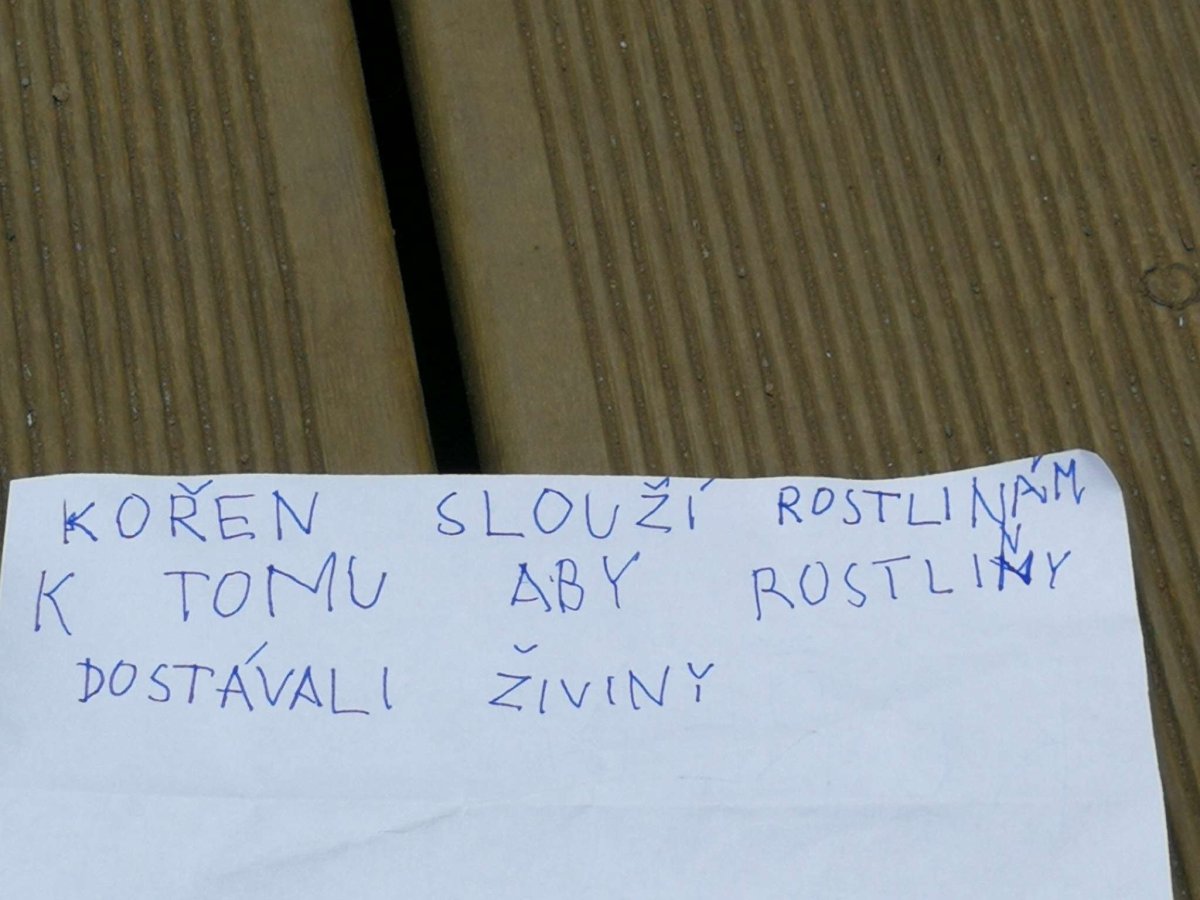 KOŘEN SLOUŽÍ ROSTLINÁM
K TOMU ABY ROSTLINY
DOSTÁVALI ŽIVINY